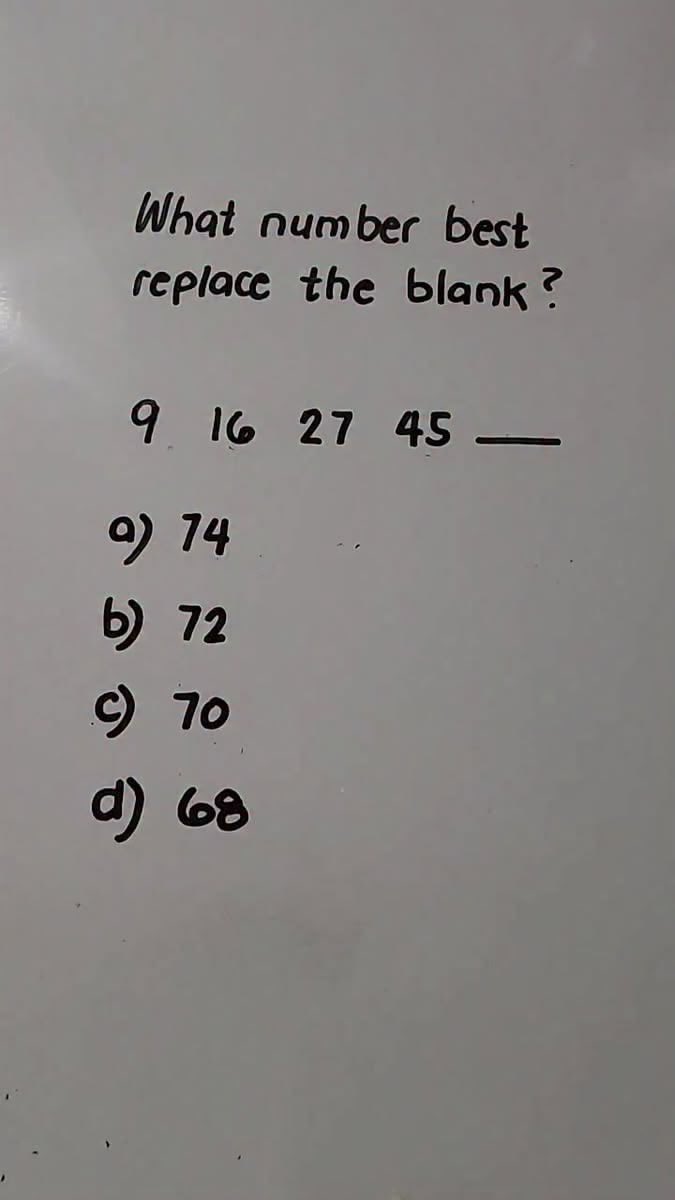 What number best
replace the blank?
9 16 27 45 __
a) 74
b) 72
c) 70
d) 68